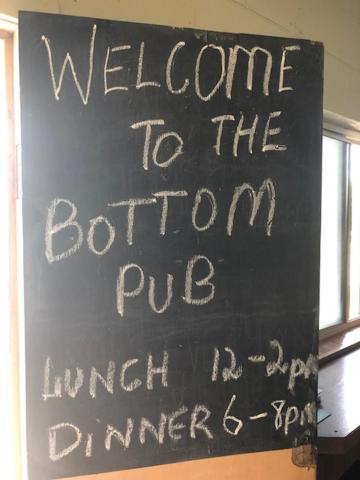 WELCOME
TO THE
BOTTOM
PUB
LUNCH 12-2pm
DiNNER 6-8pm